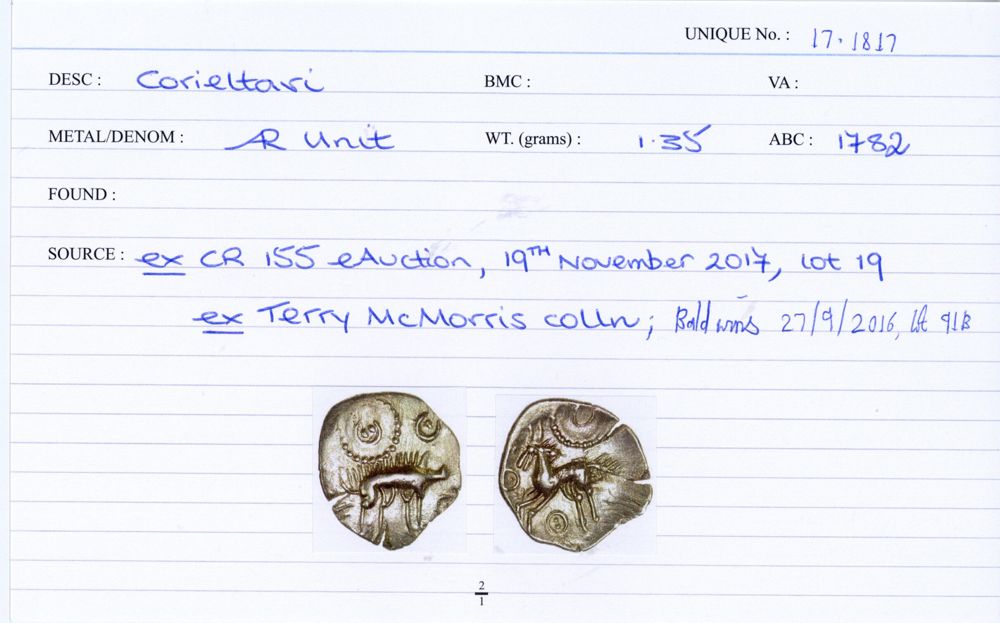 UNIQUE No. : 17.1817
DESC : Corieltavi BMC : VA :
METAL/DENOM : AR Unit WT. (grams) : 1.35 ABC : 1782
FOUND :
SOURCE : ex CR 155 eAuction, 19TH November 2017, lot 19
ex Terry McMorris colln; Baldwins 27/9/2016, lot 91B
2
1